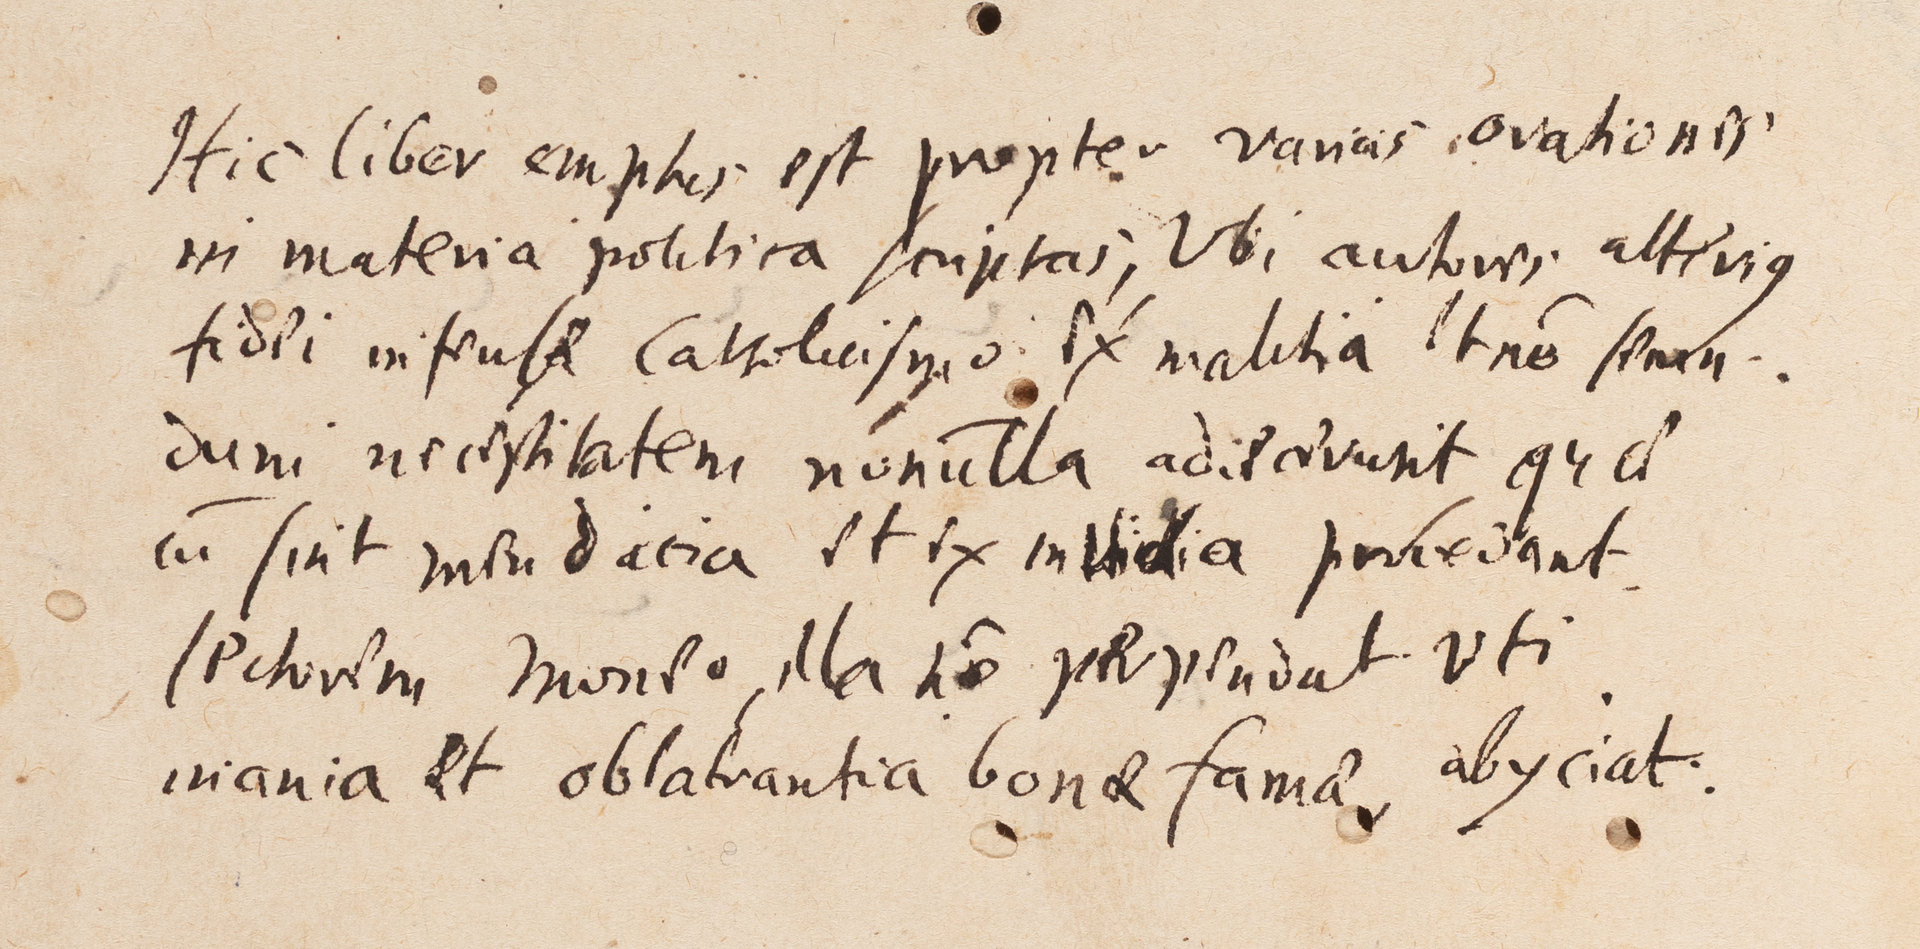 Hic liber emptus est propter varias orationes
in materia politica scriptas, Vbi autores alterius
fidei infensæ Catholicismo ex malitia et nō secun-
dum necessitatem nonūlla adiecerunt quæ
cū sint mendacia et ex invidia procedant
lectorem moneo, illa nō perpendat vti
inania et oblatrantia bonæ famæ, abyciat.